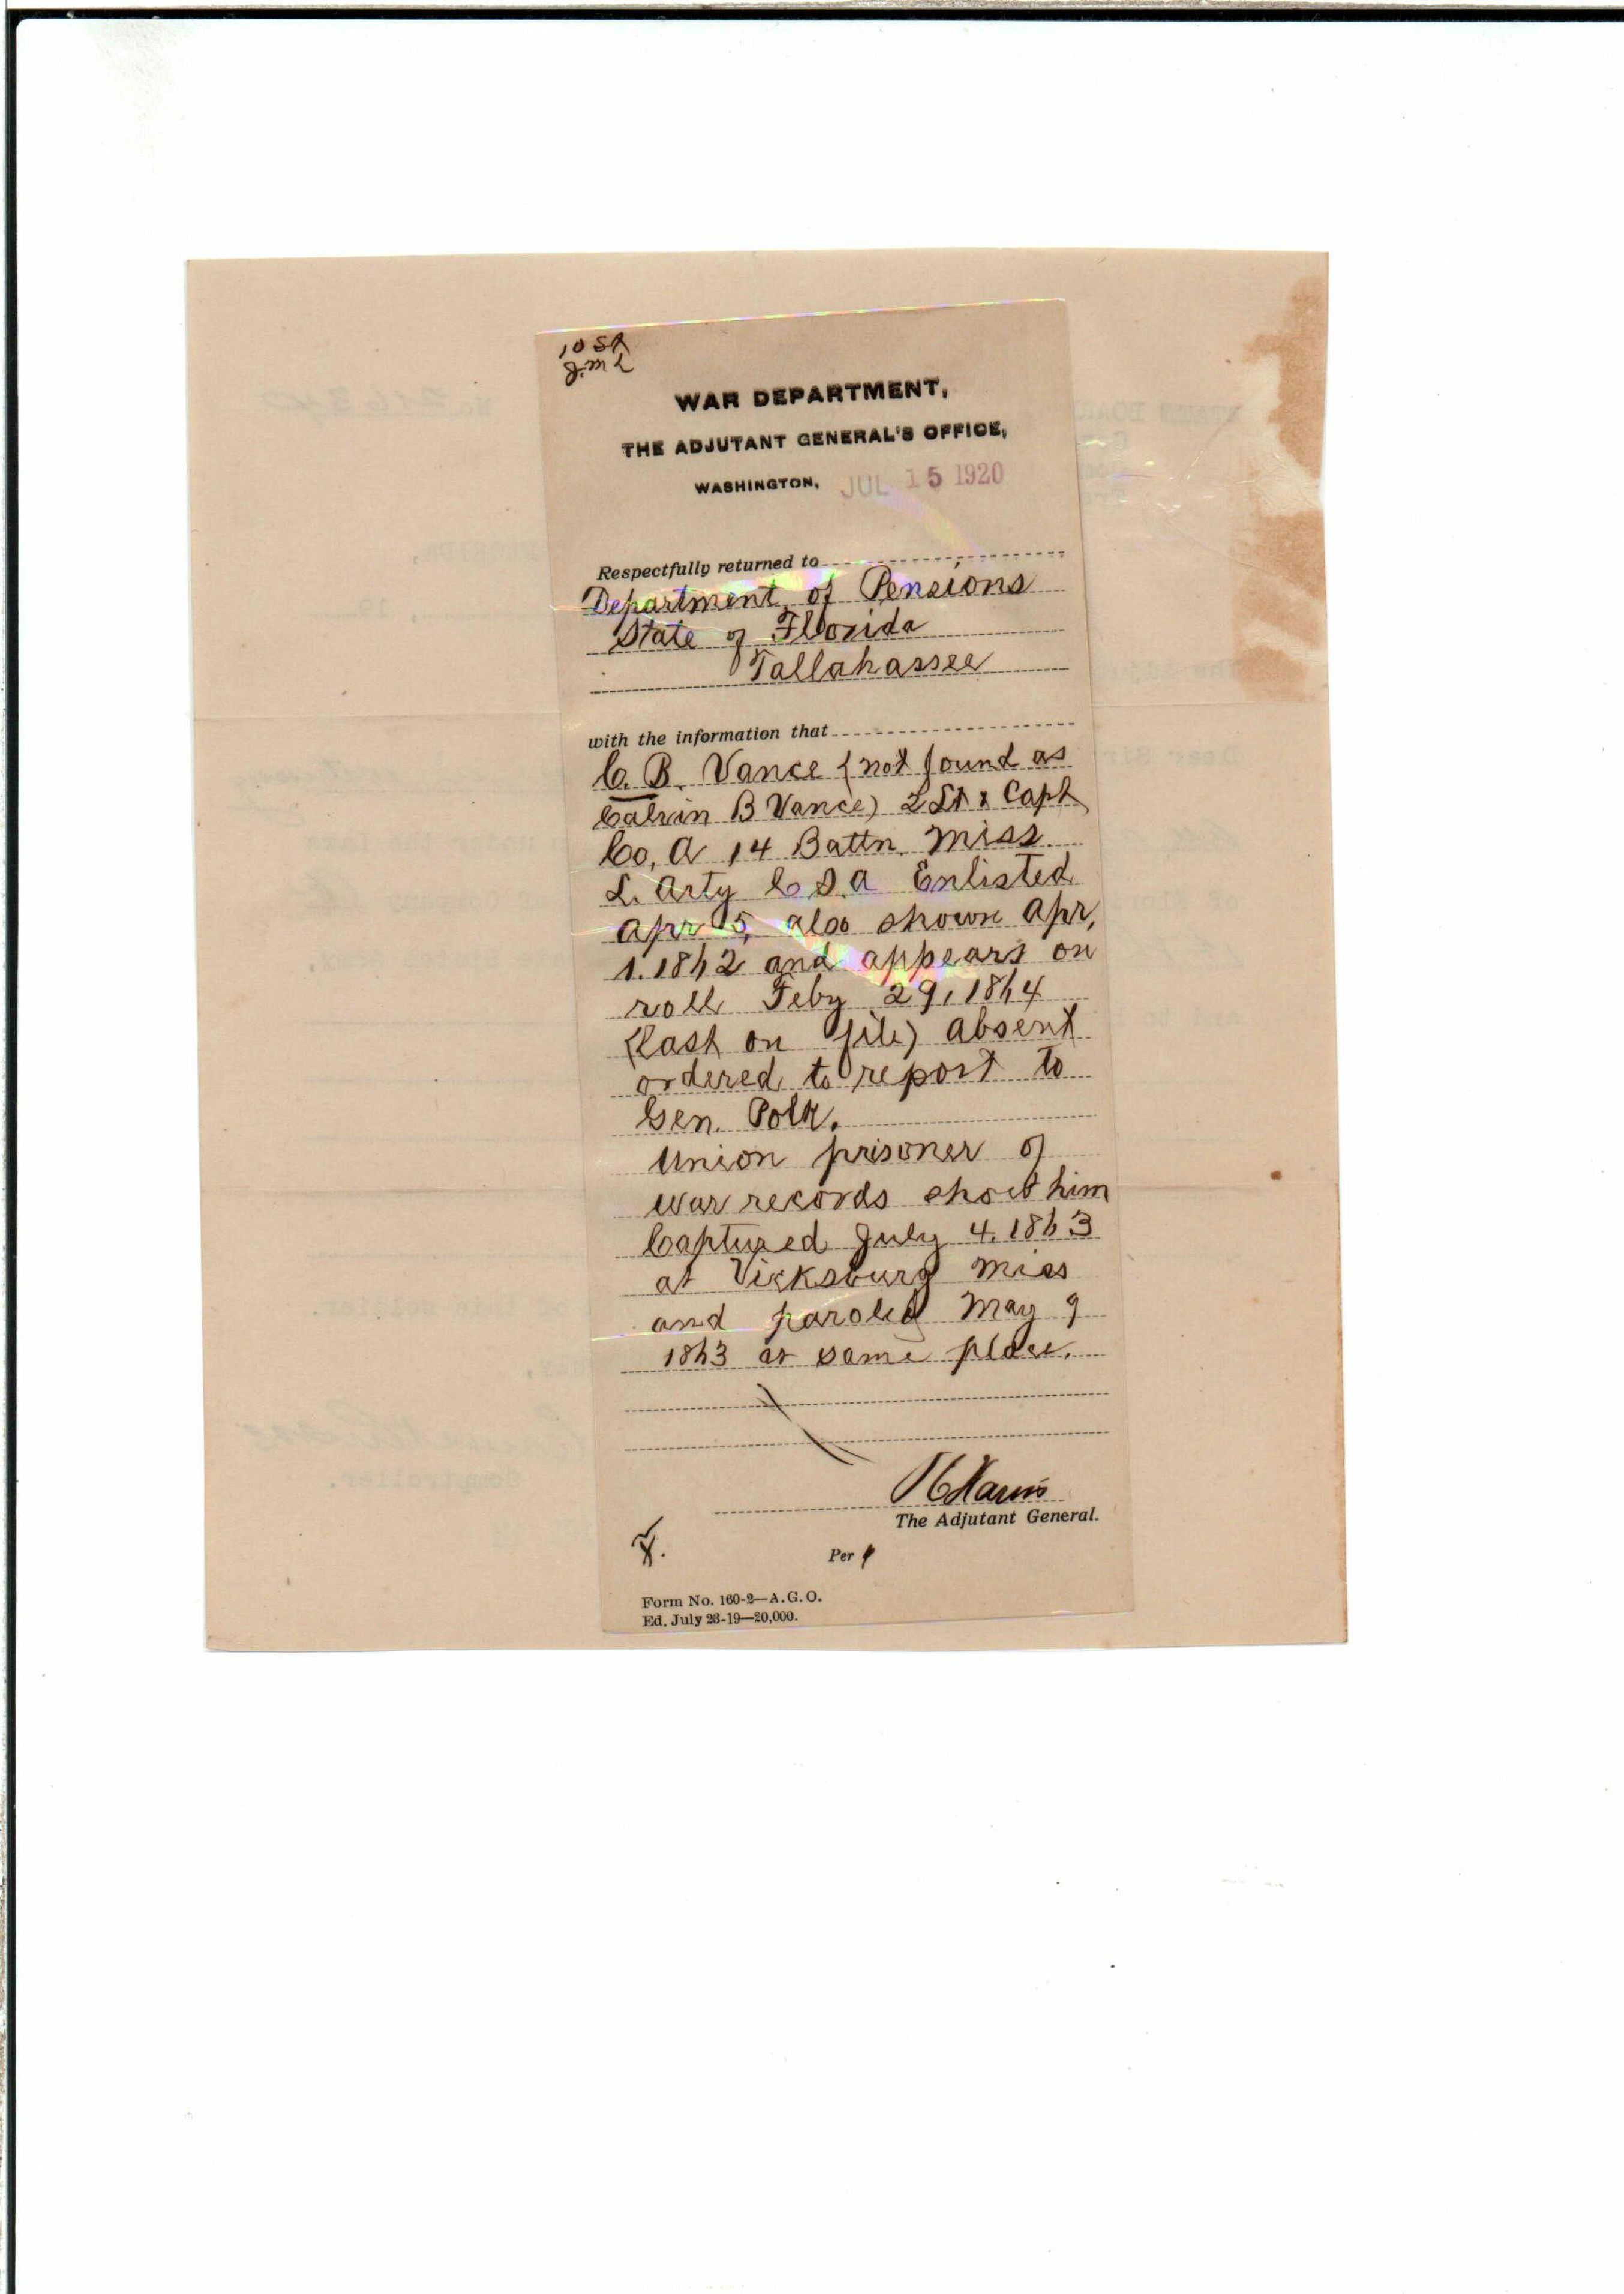 10 St
WAR DEPARTMENT,
THE ADJUTANT GENERAL'S OFFICE,
WASHINGTON, JUL 15 1920
Respectfully returned to
Department of Pensions
State of Florida
Tallahassee
with the information that
C. B. Vance (not found as
Calvin B Vance) 2 Lt & Capt
Co, A 14 Battn. Miss.
L. Arty C S. A Enlisted
Apr 5, also shown Apr,
1. 1862 and appears on
roll Feby 29, 1864
(Last on file) absent
ordered to report to
Gen. Polk.
Union prisoner of
war records show him
Captured July 4, 1863
at Vicksburg Miss
and paroled May 9
1863 at same place.
P C Harris
The Adjutant General.
Per
Form No. 160-2—A.G.O.
Ed. July 26-19—20,000.